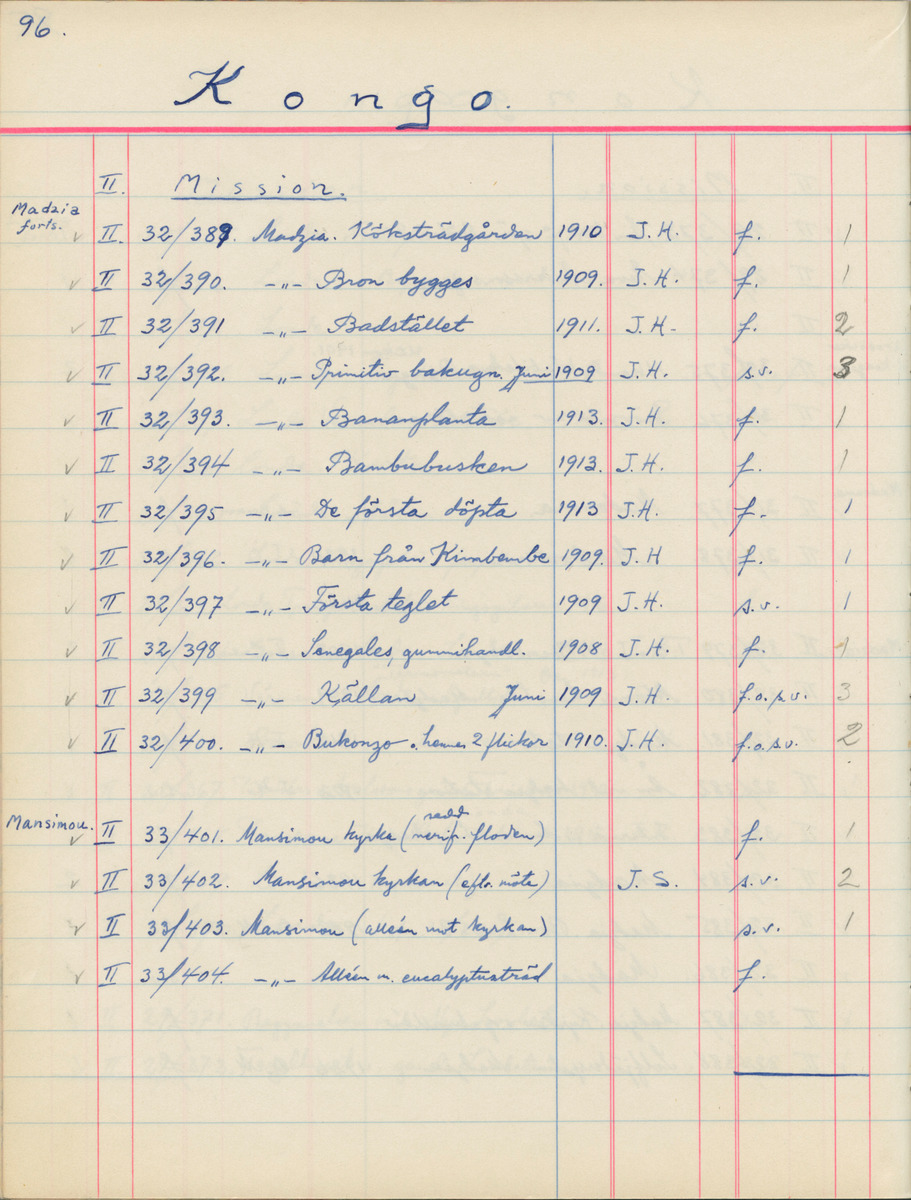 96.
Kongo.
II. Mission.
Madzia forts.
✓ II. 32/389. Madzia. Köksträdgården 1910 J.H. f. 1
✓ II 32/390. -„- Bron bygges 1909. J.H. f. 1
✓ II 32/391 -„- Badstället 1911. J.H. f. 2
✓ II 32/392. -„- Primitiv bakugn. Juni 1909 J.H. s.v. 3
✓ II 32/393. -„- Bananplanta 1913. J.H. f. 1
✓ II 32/394 -„- Bambubusken 1913. J.H. f. 1
✓ II 32/395 -„- De första döpta 1913 J.H. f. 1
✓ II 32/396. -„- Barn från Kimbembe 1909. J.H f. 1
✓ II 32/397 -„- Första teglet 1909 J.H. s.v. 1
✓ II 32/398 -„- Senegales, gummihandl. 1908 J.H. f. 1
✓ II 32/399 -„- Källan Juni 1909 J.H. f.o.s.v. 3
✓ II 32/400. -„- Bukonzo o. hennes 2 flickor 1910. J.H. f.o.s.v. 2
Mansimou.
✓ II 33/401. Mansimou kyrka (nerifr. floden) f. 1
✓ II 33/402. Mansimou kyrkan (eftr. möte) J.S. s.v. 2
✓ II 33/403. Mansimou (alléen mot kyrkan) s.v. 1
✓ II 33/404. -„- Alléen m. eucalyptusträd f.